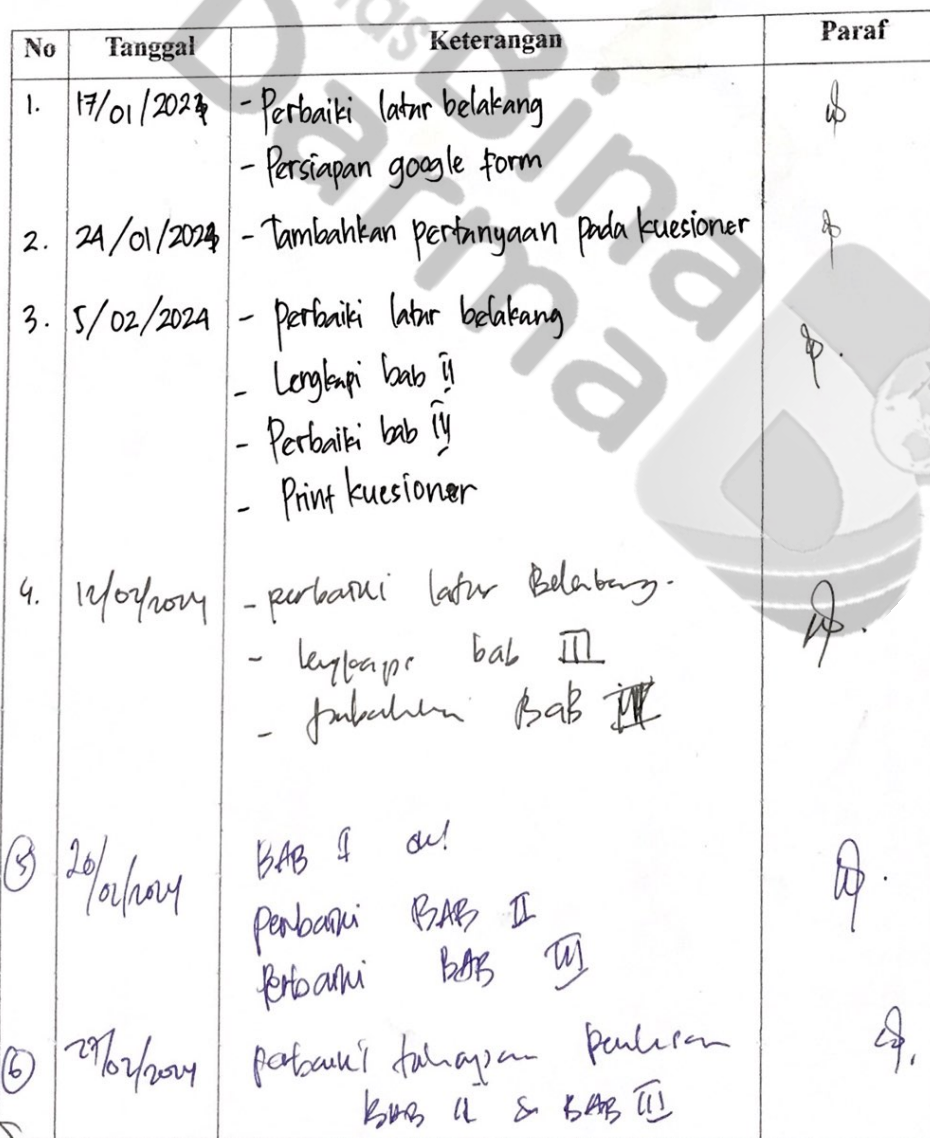 No Tanggal Keterangan Paraf
1. 17/01/2024 - Perbaiki latar belakang
- Persiapan google form
2. 24/01/2024 - Tambahkan pertanyaan pada kuesioner
3. 5/02/2024 - Perbaiki latar belakang
- Lengkapi bab II
- Perbaiki bab IV
- Print kuesioner
4. 12/02/2024 - perbaiki latar Belakang.
- lengkapi bab III
- tambahkan BaB
5 20/02/2024 BAB I ok!
perbaiki BAB II
Perbaiki BAB III
6 27/02/2024 perbaiki tahapan penulisan
BAB II & BAB III
Bina
Darma